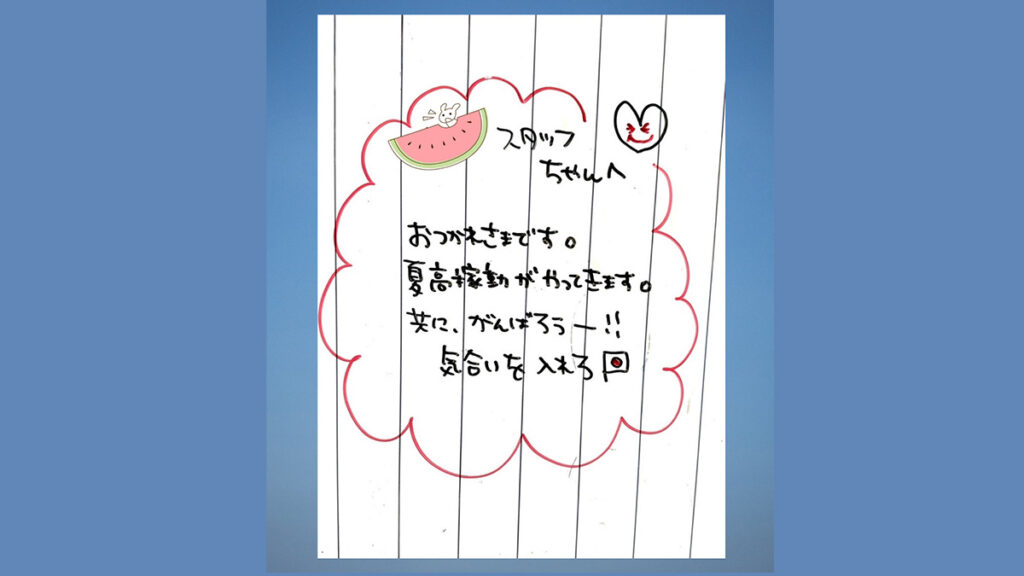 スタッフ
ちゃんへ
おつかれさまです。
夏高稼動がやってきます。
共に、がんばろうー!!
気合いを入れろ